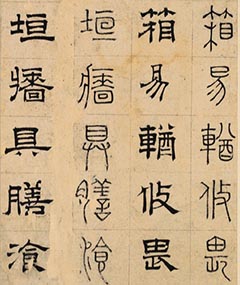 箱易輶攸畏
箱易輶攸畏
垣牆具膳湌
垣牆具膳湌